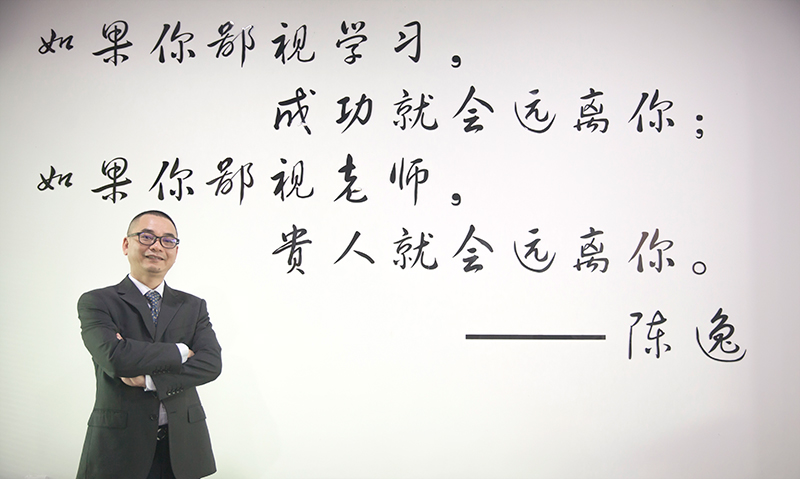 如果你鄙视学习，
成功就会远离你；
如果你鄙视老师，
贵人就会远离你。
——陈逸